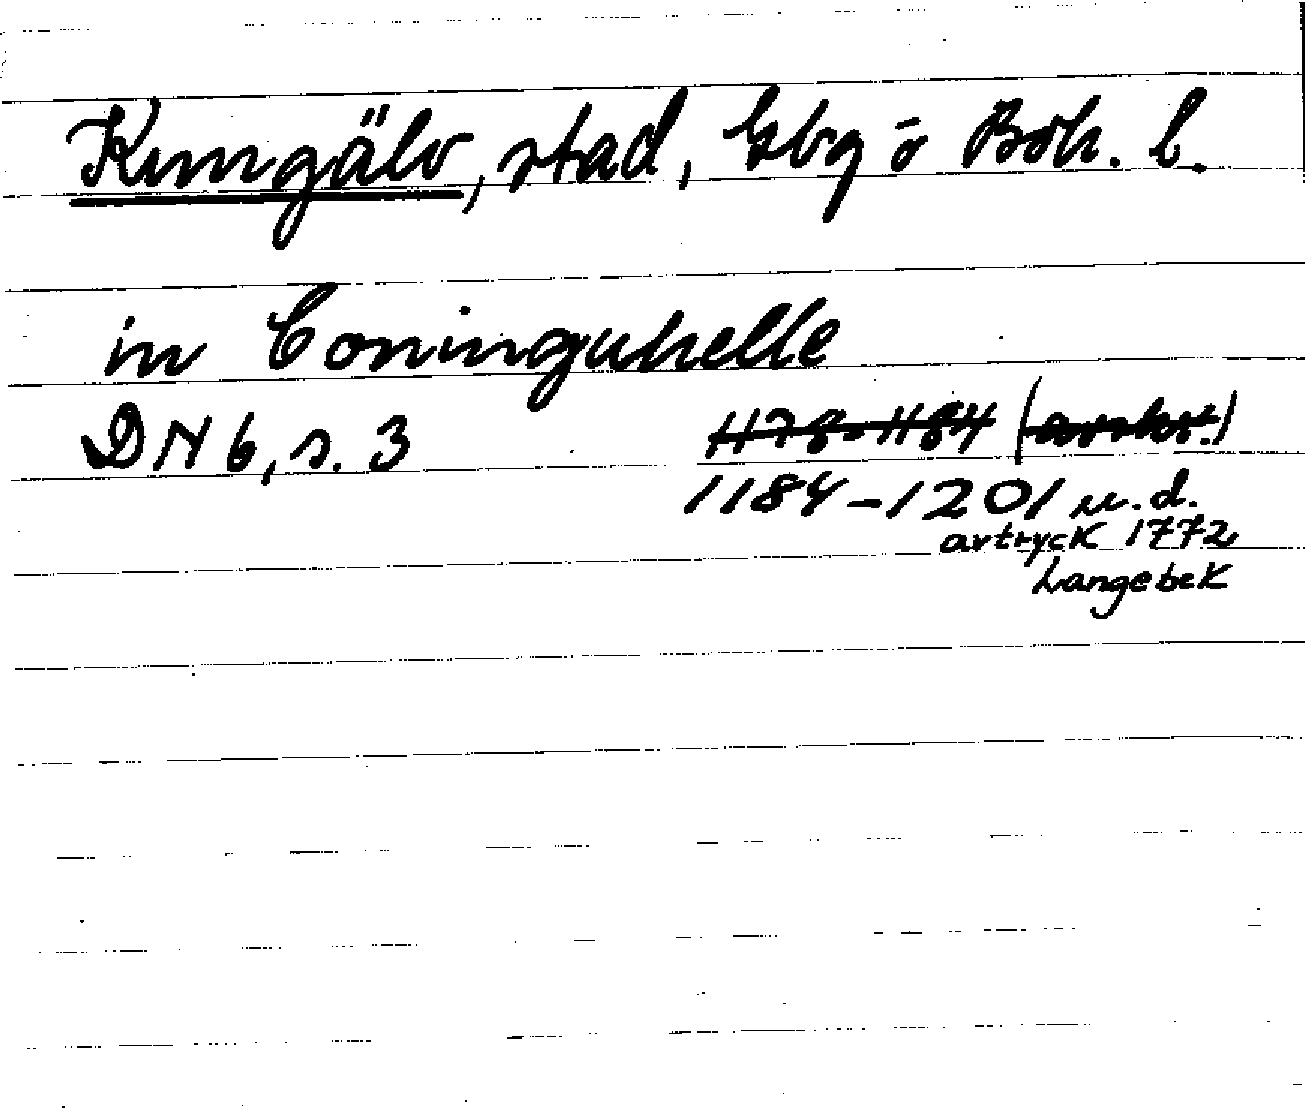 Kungälv, stad, Gbg o Boh. l.
in Coninguhelle
DN 6, s. 3 1178-1184 (avskr.)
1184-1201 u.d.
avtryck 1772
Langebek